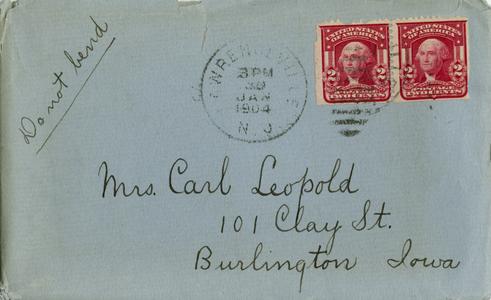 Do not bend
LAWRENCEVILLE
3 PM
30
JAN
1904
N.J.
UNITED STATES
OF AMERICA
2 2
POSTAGE
TWO CENTS
UNITED STATES
OF AMERICA
2 2
POSTAGE
TWO CENTS
Mrs. Carl Leopold
101 Clay St.
Burlington Iowa